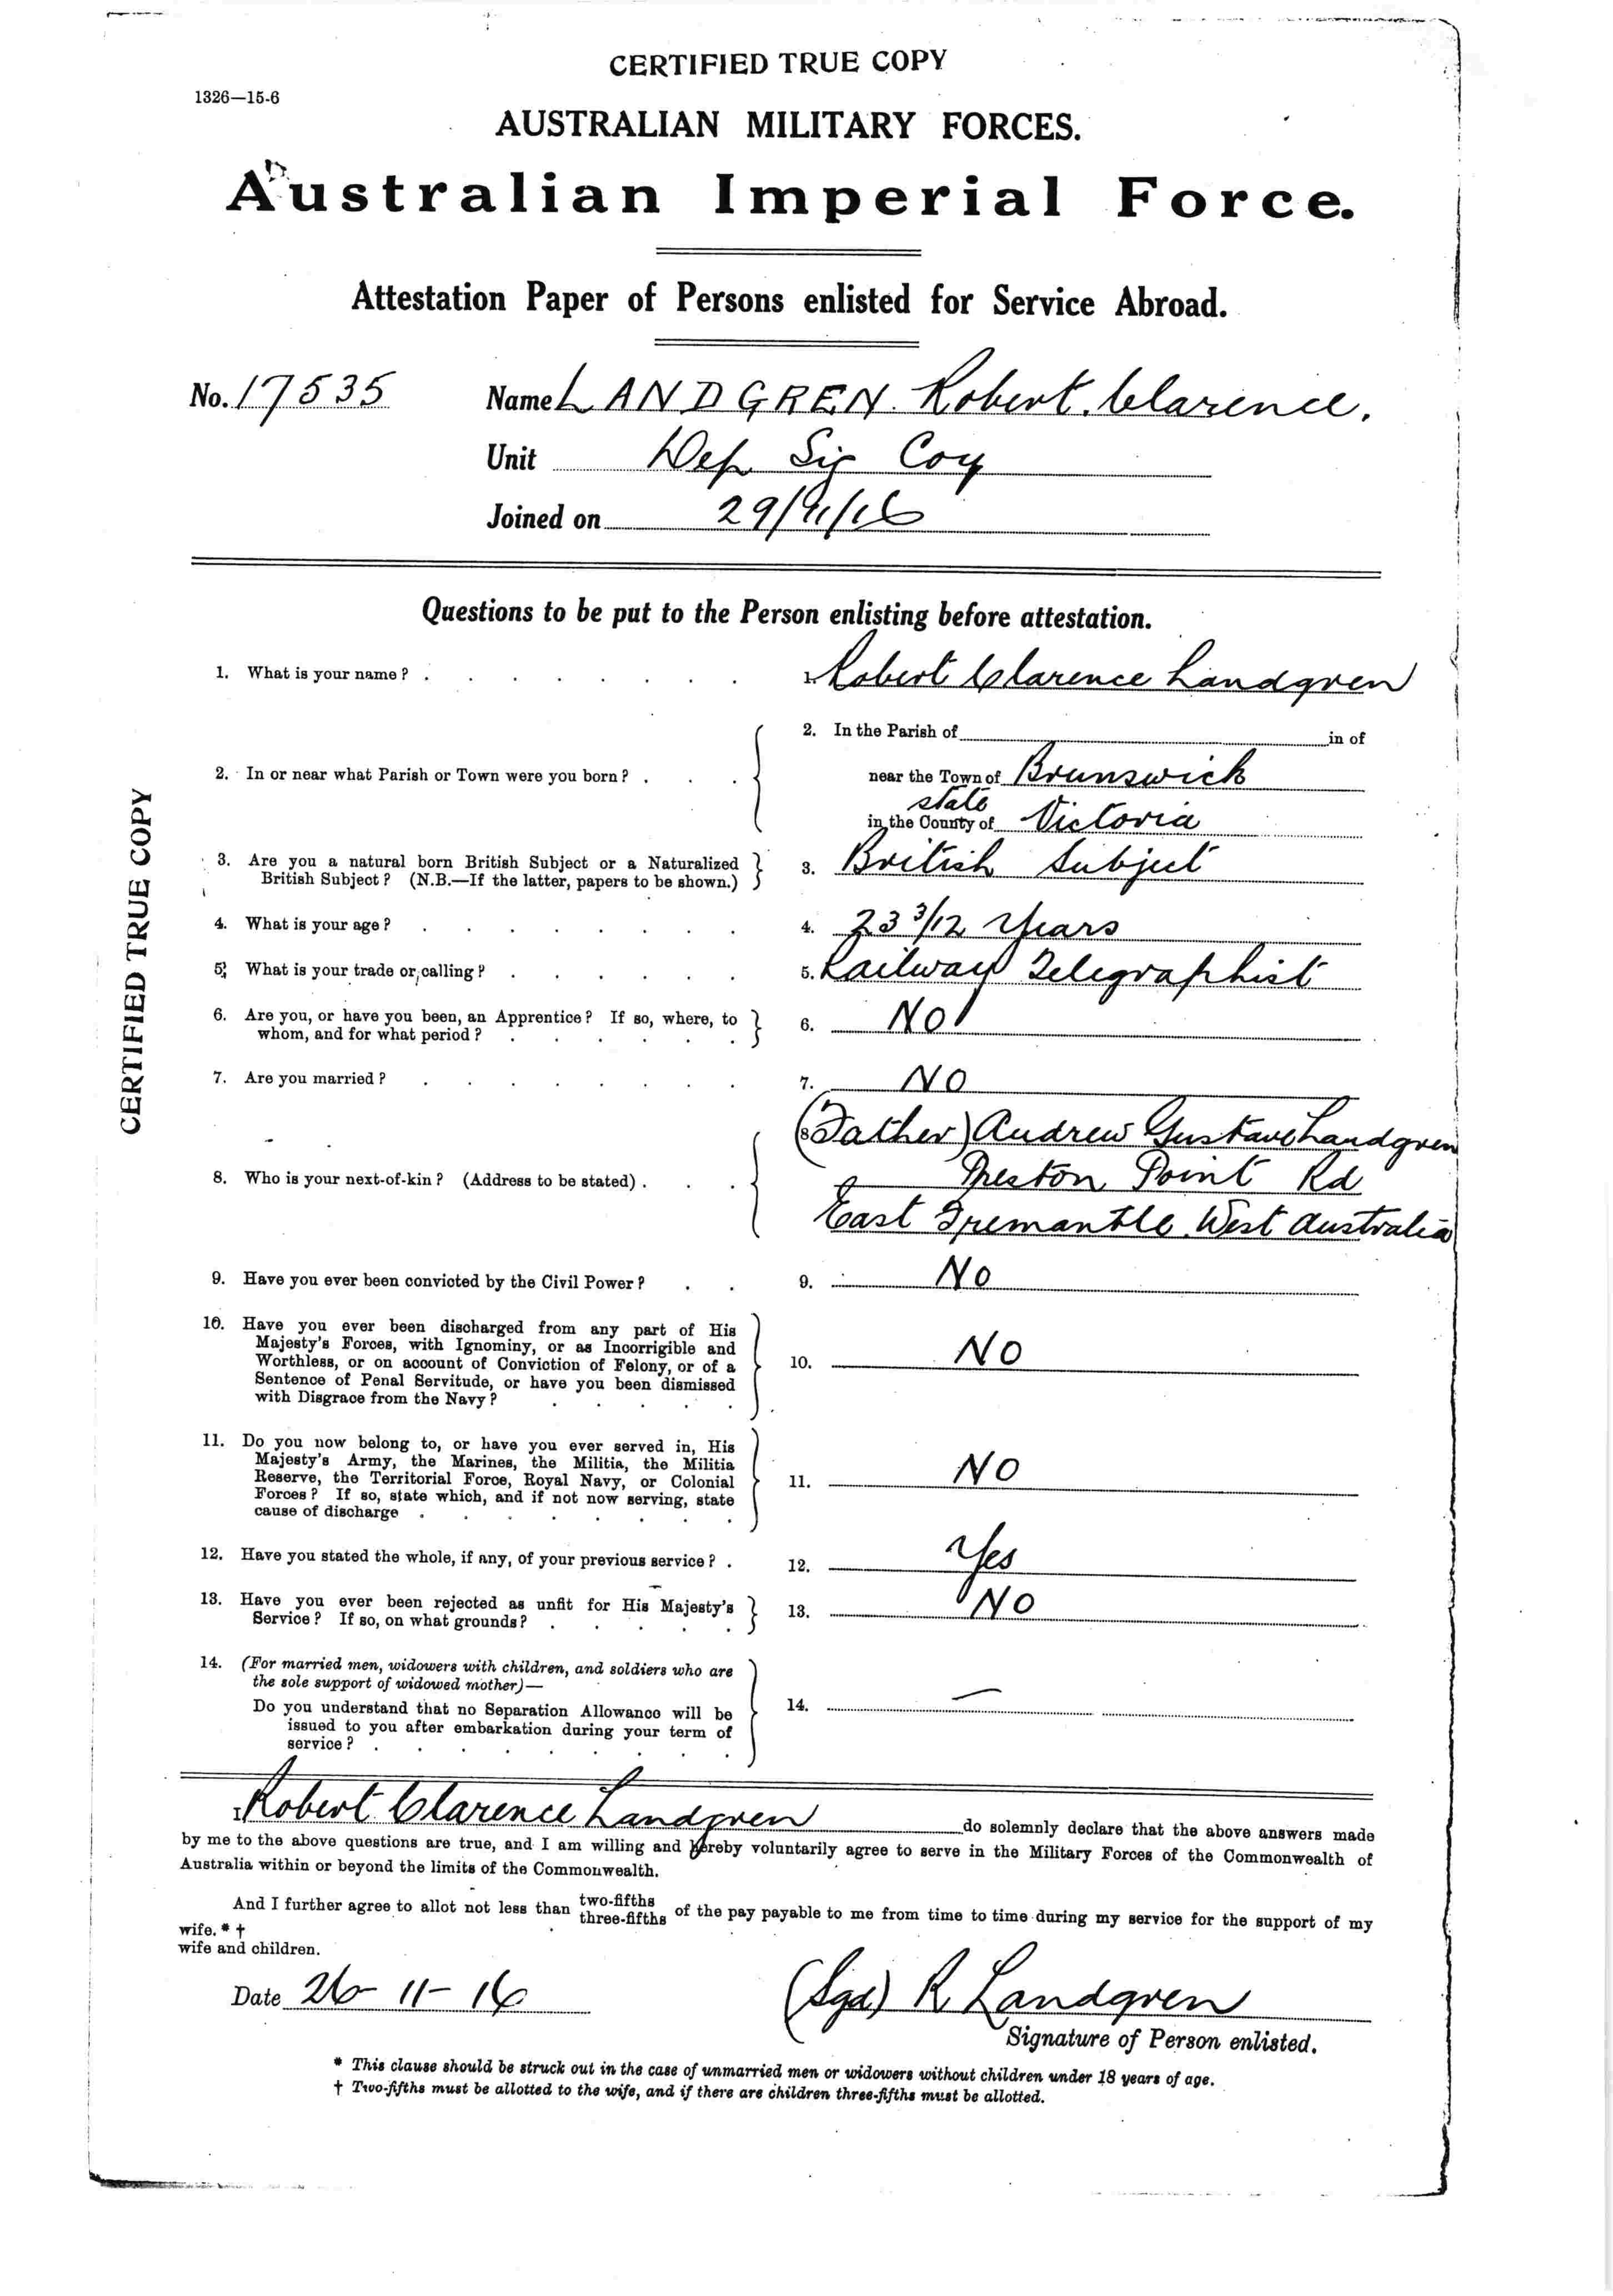 CERTIFIED TRUE COPY
1326—15-6
AUSTRALIAN MILITARY FORCES.
Australian Imperial Force.
Attestation Paper of Persons enlisted for Service Abroad.
No. 17535 Name LANDGREN. Robert. Clarence.
Unit Dep Sig Coy
Joined on 29/11/16
Questions to be put to the Person enlisting before attestation.
1. What is your name? . 1. Robert Clarence Landgren
2. In the Parish of in of
2. In or near what Parish or Town were you born? . near the Town of Brunswick
state
in the County of Victoria
3. Are you a natural born British Subject or a Naturalized 3. British Subject
British Subject? (N.B.—If the latter, papers to be shown.)
4. What is your age? . 4. 23 3/12 Years
5. What is your trade or calling? . 5. Railway Telegraphist
6. Are you, or have you been, an Apprentice? If so, where, to 6. No
whom, and for what period? .
7. Are you married? . 7. NO
8. (Father) Andrew Gustave Landgren
8. Who is your next-of-kin? (Address to be stated) . Preston Point Rd
East Fremantle West Australia
9. Have you ever been convicted by the Civil Power? . 9. No
10. Have you ever been discharged from any part of His
Majesty's Forces, with Ignominy, or as Incorrigible and
Worthless, or on account of Conviction of Felony, or of a 10. NO
Sentence of Penal Servitude, or have you been dismissed
with Disgrace from the Navy? .
11. Do you now belong to, or have you ever served in, His
Majesty's Army, the Marines, the Militia, the Militia
Reserve, the Territorial Force, Royal Navy, or Colonial 11. NO
Forces? If so, state which, and if not now serving, state
cause of discharge .
12. Have you stated the whole, if any, of your previous service? . 12. Yes
13. Have you ever been rejected as unfit for His Majesty's 13. NO
Service? If so, on what grounds? .
14. (For married men, widowers with children, and soldiers who are
the sole support of widowed mother)—
Do you understand that no Separation Allowance will be 14. —
issued to you after embarkation during your term of
service? .
CERTIFIED TRUE COPY
I Robert Clarence Landgren do solemnly declare that the above answers made
by me to the above questions are true, and I am willing and hereby voluntarily agree to serve in the Military Forces of the Commonwealth of
Australia within or beyond the limits of the Commonwealth.
And I further agree to allot not less than two-fifths three-fifths of the pay payable to me from time to time during my service for the support of my
wife. * †
wife and children.
Date 26-11-16 (Sgd) R Landgren
Signature of Person enlisted.
* This clause should be struck out in the case of unmarried men or widowers without children under 18 years of age.
† Two-fifths must be allotted to the wife, and if there are children three-fifths must be allotted.